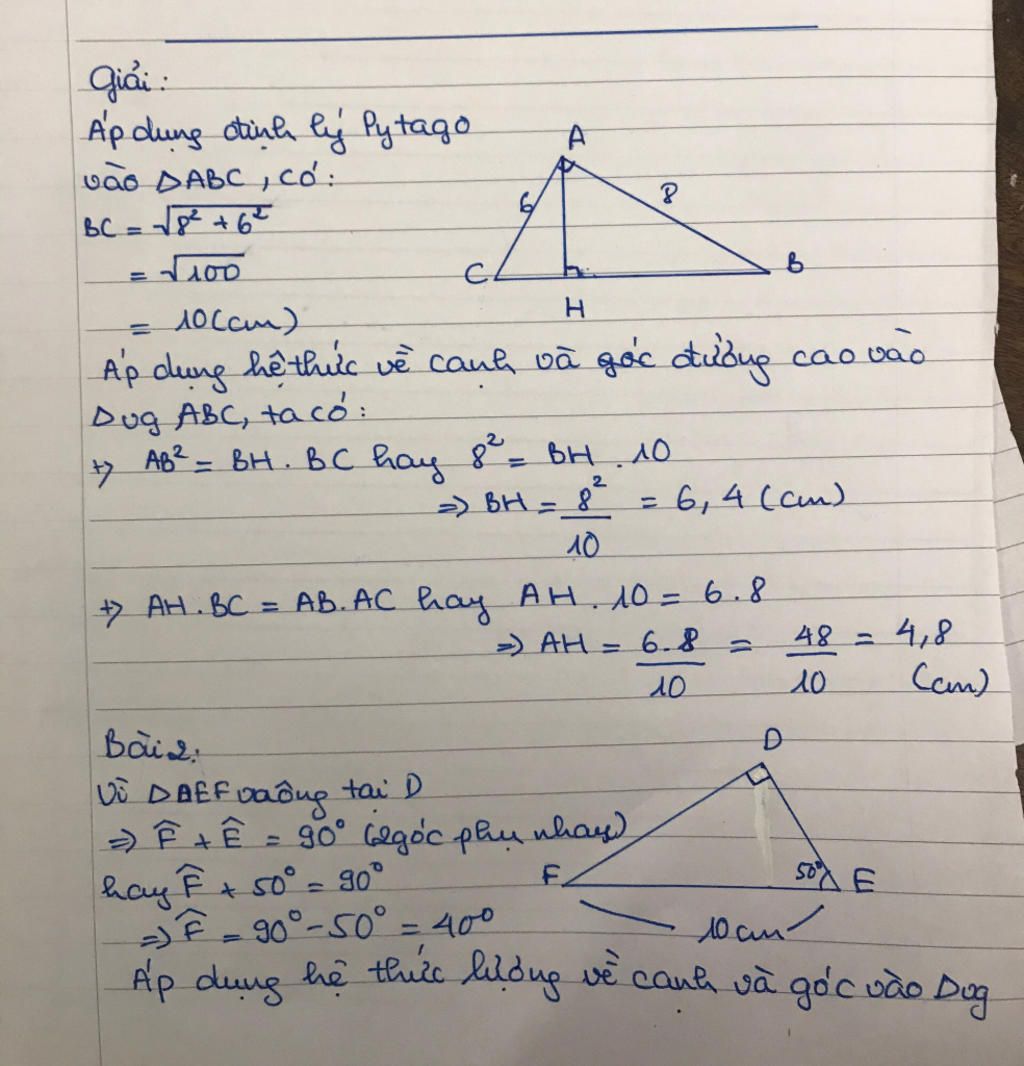 Giải:
Áp dụng định lý Pytago
vào ΔABC, có:
BC = √8² + 6²
= √100
= 10(cm)
A
6
8
C
B
H
Áp dụng hệ thức về cạnh và góc đường cao vào
Δvg ABC, ta có:
+, AB² = BH . BC hay 8² = BH . 10
=> BH = 8²/10 = 6,4 (cm)
+, AH.BC = AB.AC hay AH . 10 = 6.8
=> AH = 6.8/10 = 48/10 = 4,8
(cm)
Bài 2:
Vì ΔDEF vuông tại D
=> F̂ + Ê = 90° (2góc phụ nhau)
hay F̂ + 50° = 90°
=> F̂ = 90° - 50° = 40°
D
F
50°
E
10cm
Áp dụng hệ thức lượng về cạnh và góc vào Δvg